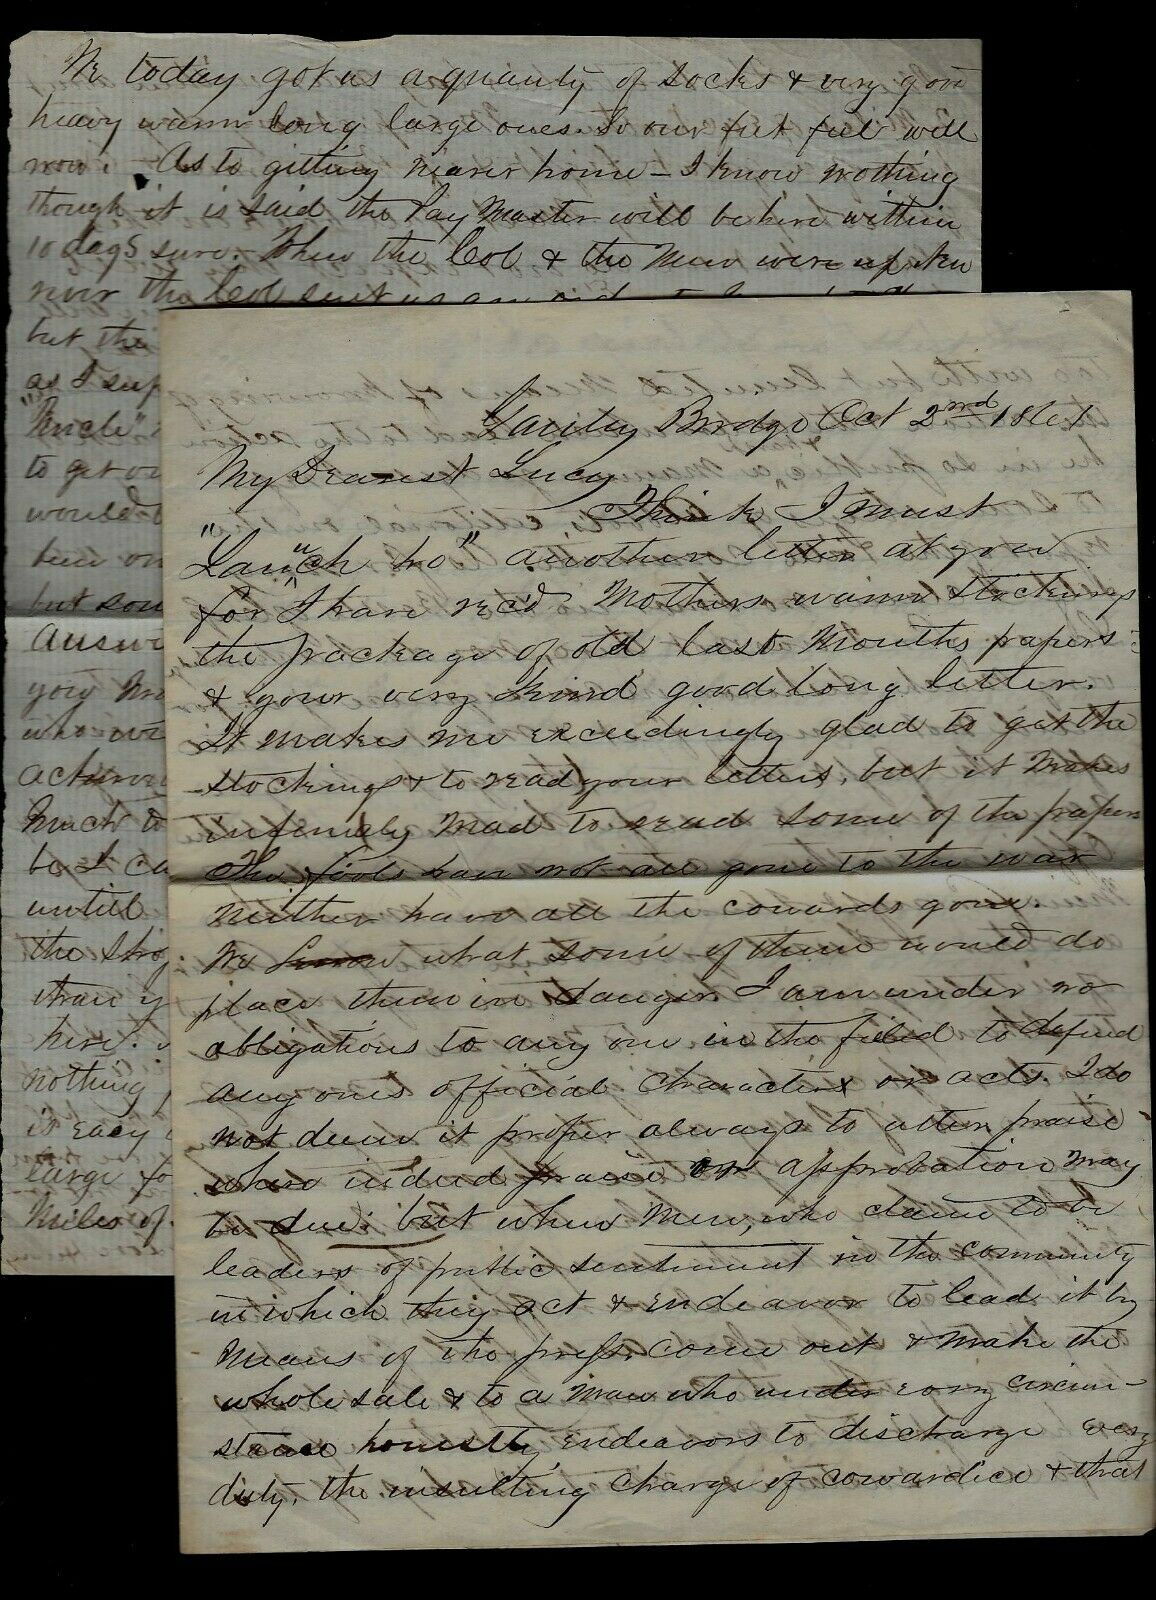 We today got us a quanty of socks & very good
heavy warm long large ones. So our feet feel well
now. As to gitting nearer home - I know nothing
though it is said the Pay Master will be here within
10 days sure. When the Col & the Men were up New
river the Col sent us an
but the
as I sup
"Uncle"
to get ou
would b
been on
but som
answe
you
who
act
Much to
be I ca
untill
the
than y
here.
nothing
it easy
large fo
Miles of
Gauley Bridge Oct 2nd 1861
My Dearest Lucy
Think I must
"Launch ho" another letter at you
for I have rec'd Mothers warm stockings
the package of old last Months papers
& your very kind good long letter.
It makes me exceedingly glad to get the
stockings & to read your letters, but it makes
infernely mad to read some of the papers
The fools have not all gone to the war
Neither have all the cowards gone.
We know what some of them would do
place them in danger. I am under no
obligations to any one in the filed to defend
any ones official character or acts. I do
not deem it proper always to utter praise
where indeed praise or approbation may
be due: but when Men, who claim to be
leaders of public sentiment in the community
in which they act & endeavor to lead it by
Means of the press, come out & make the
whole sale & to a man who under every circum-
stance honestly endeavors to discharge every
duty, the insulting charge of cowardice & that